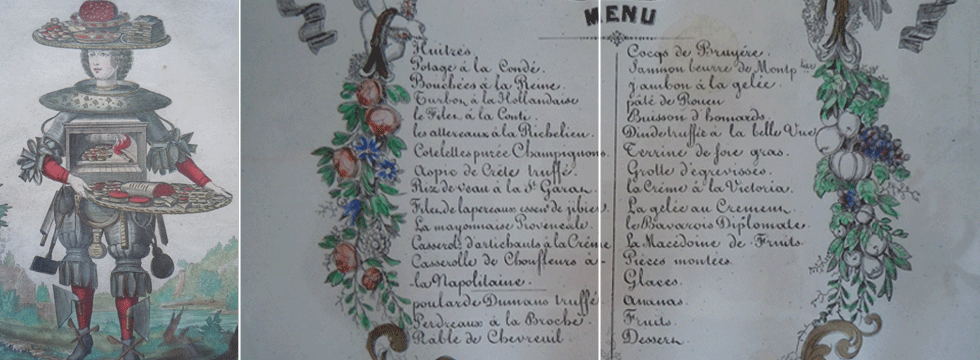 MENU
Huitres
Potage à la Condé.
Bouchées à la Reine.
Turbon à la Hollandaise
le Filet à la Conti.
les attereaux à la Richelieu.
Cotelettes purée Champignons.
Aspic de Crète truffé.
Riz de veau à la St Garat.
Filen de lapereaux essen de jibier
La mayonnaise Provencale.
Casserole d'artichauts à la Crème
Casserolle de Choufleurs à
la Napolitaine.
poularde Dumans truffé.
Perdreaux à la Broche.
Rable de Chevreuil.
Cocqs de Bruyére.
Jammon beurre de Montp
jambon à la gelée.
pâté de Rouen
Buisson d'homards.
Dinde truffée à la bille Vue
Terrine de foie gras.
Grotte d'égrevisses.
la Créme à la Victoria.
La gelée au
le Bavarois Diplomate
La Macédoine de Fruits
Pièces montées.
Glaces.
Ananas.
Fruits.
Dessert.